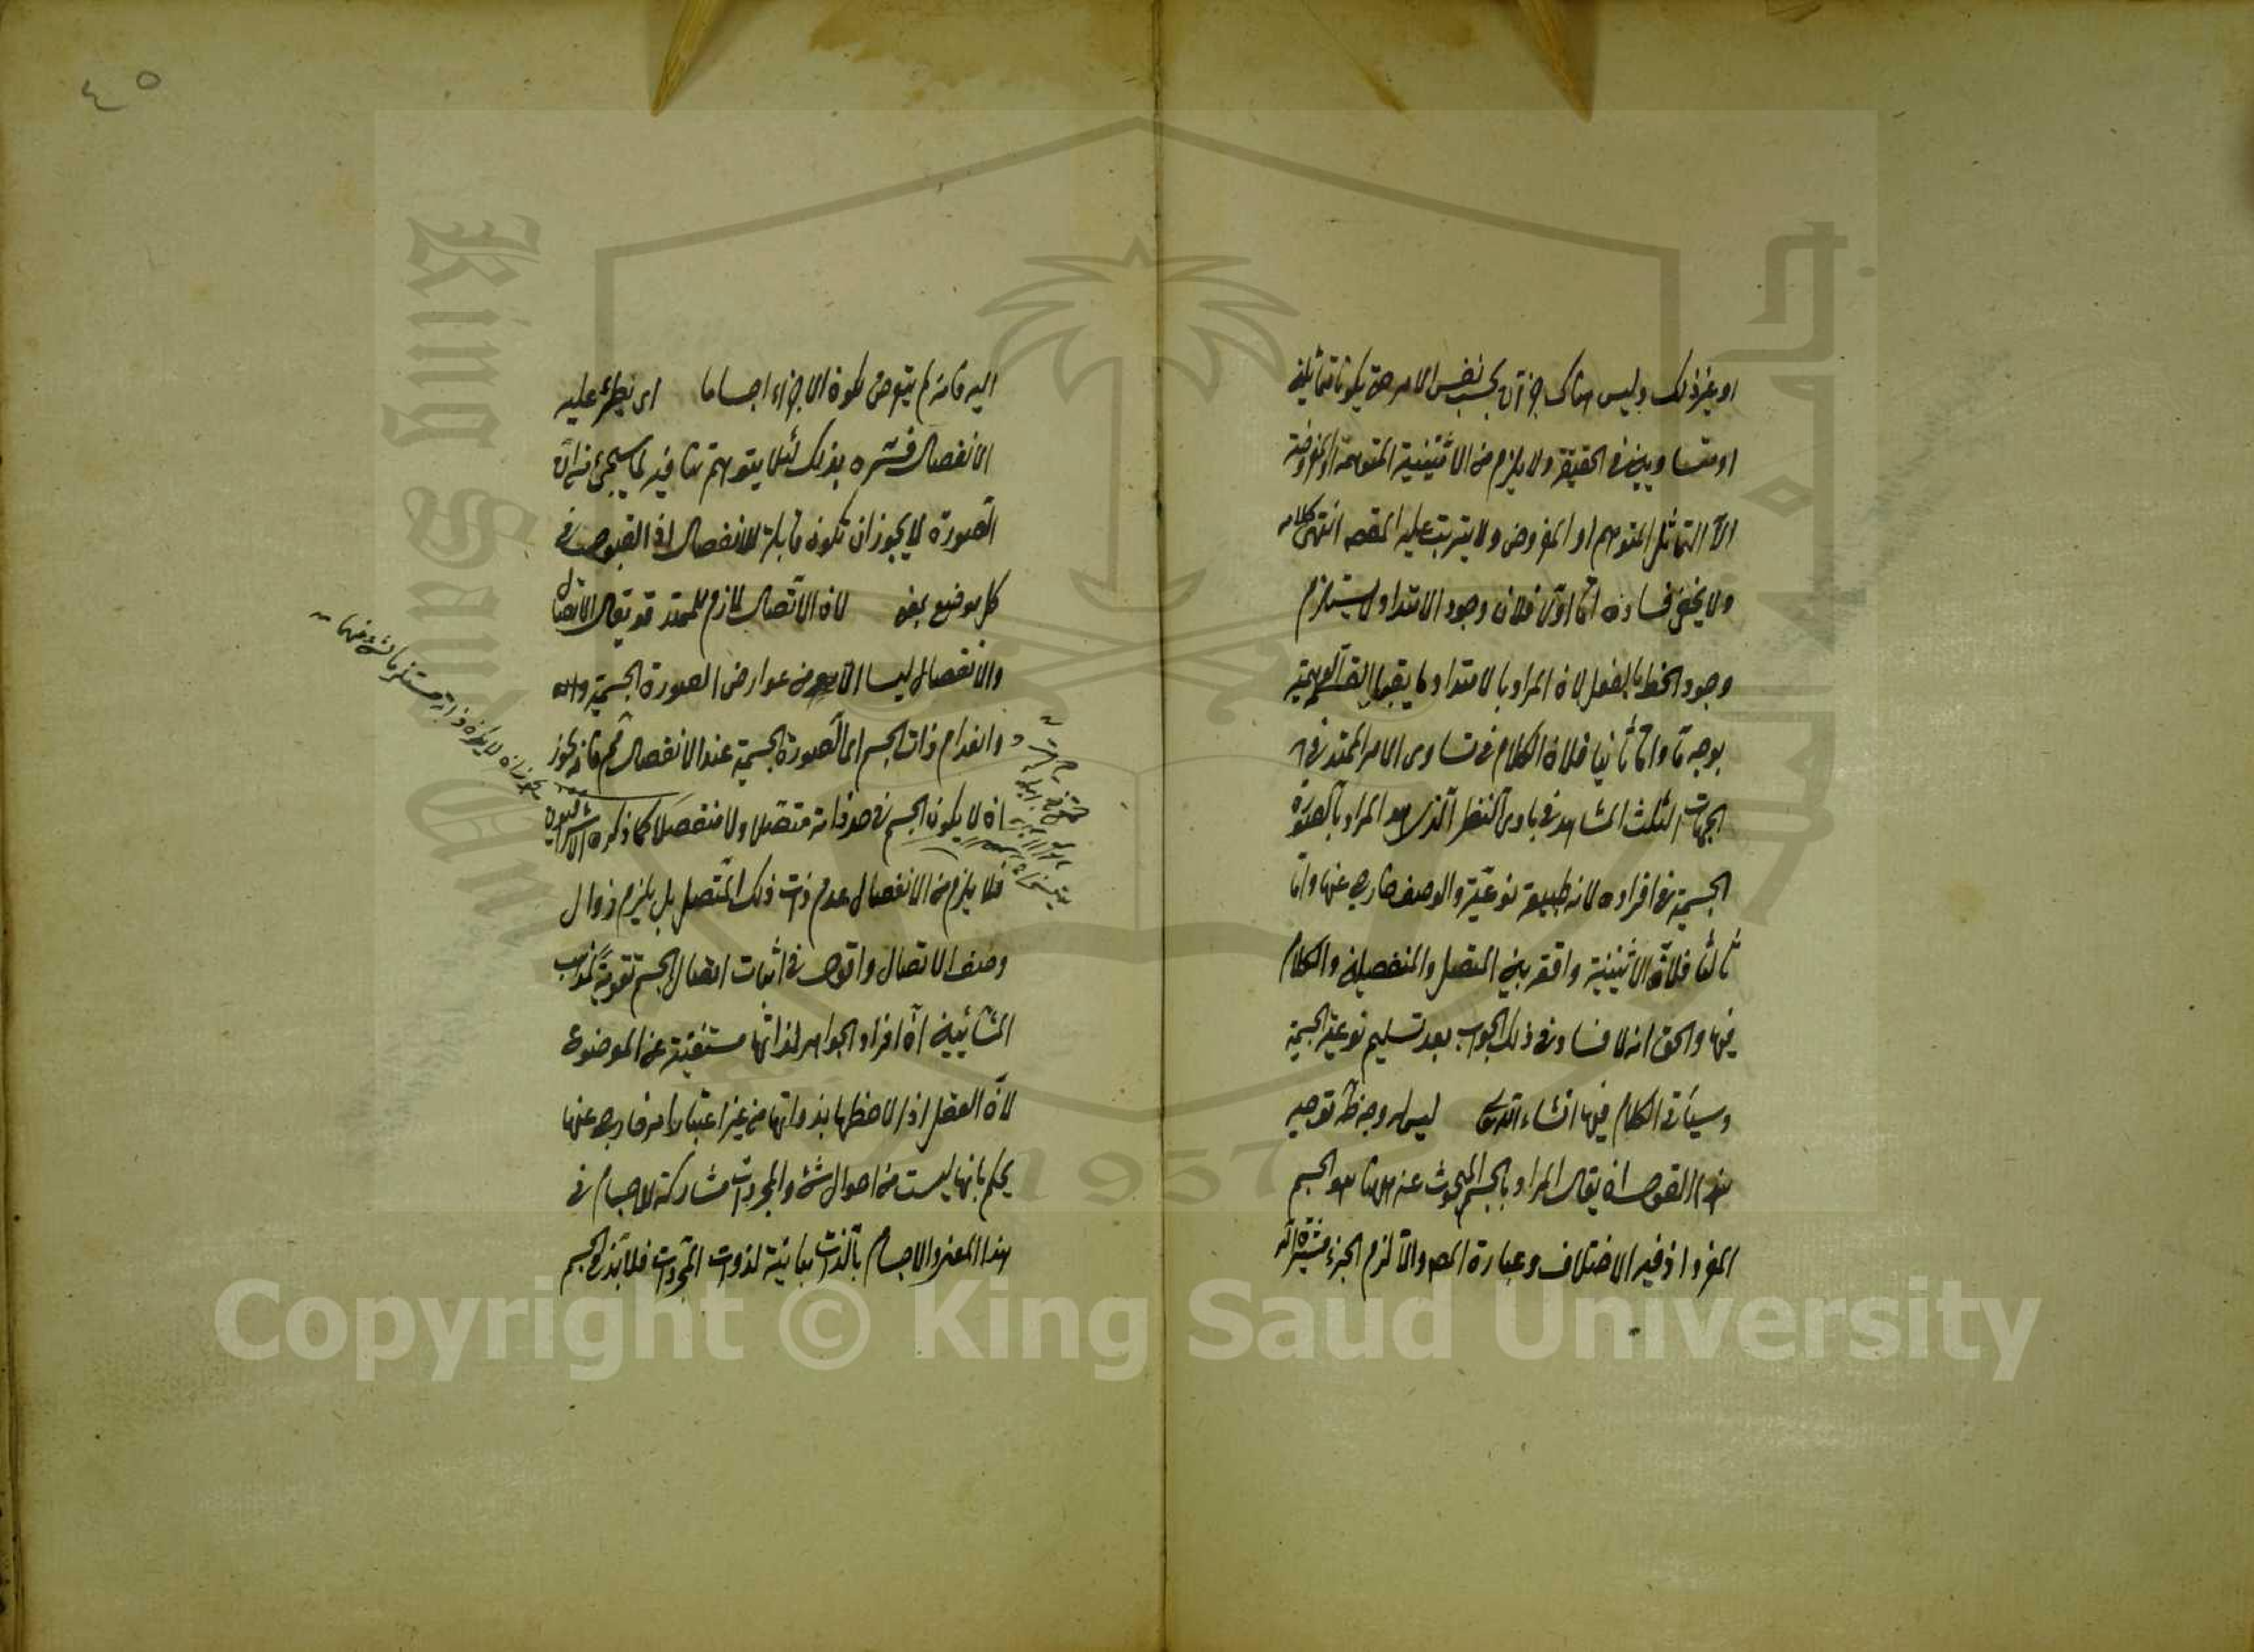 او غير ذلك وليس هناك جزآن بحسب نفس الامر حتى يكونا متماثلين
او متساويين في الحقيقة ولا يلزم من الاثنينية المتوهمة او المفروضة
الا التماثل المتوهم او المفروض ولا يترتب عليه المقصه انتهى كلامه
ولا يخفى فساده اما اولا فلان وجود الامتداد لا يستلزم
وجود الخط بالفعل لان المراد بالامتداد ما يقبل القسمة الوهمية
بوجه ما واما ثانيا فلان الكلام في تساوى الامر الممتد في
الجهات الثلث المشاهد في بادى النظر الذى هو المراد بالصورة
الجسمية في افراده لانه طبيعة نوعية والوصف خارج عنها واما
ثالثا فلان الاثنينية واقعة بين المتصل والمنفصلين والكلام
فيها والحق انه لا فساد في ذلك الجواب بعد تسليم نوعية الجسمية
وسيأتى الكلام فيها انشاء الله تعالى ليس له وجه ظ توجيه
هذا القول ان يقال المراد بالجسم المبحوث عنه ههنا هو الجسم
المفرد اذ فيه الاختلاف وعبارة المصه والا لزم الجزء مشيرة
اليه فانه لم يتعرض لكون الاجزاء اجساما اى يطرء عليه
الانفصال فسره بذلك لئلا يتوهم منافيه لما سيجئ من ان
الصورة لا يجوز ان تكون قابلة للانفصال اذ القبول في
كل موضع بمعنى لان الاتصال لازم للممتد قد يقال الاتصال
والانفصال ليسا الا من عوارض الصورة الجسمية
وانعدام ذات الجسم اى الصورة الجسمية عند الانفصال مم فانه يجوز
ان لا يكون الجسم في حد ذاته متصلا ولا منفصلا كما ذكره الاشراقيون
فلا يلزم من الانفصال عدم ذات ذلك المتصل بل يلزم زوال
وصف الاتصال واقول في اثبات اتصال الجسم تقوية لمذهب
المشائيين ان افراد الجواهر لذاتها مستغنية عن الموضوع
لان العقل اذا لاحظها بذواتها من غير اعتبار امر خارج عنها
يحكم بانها ليست من احوال شئ والمجردات مشاركة للاجسام في
هذا المعنى والاجسام بالذات مباينة لذوات المجردات فلا بد في الجسم
٤٥
Copyright © King Saud University
King Saud University
1957